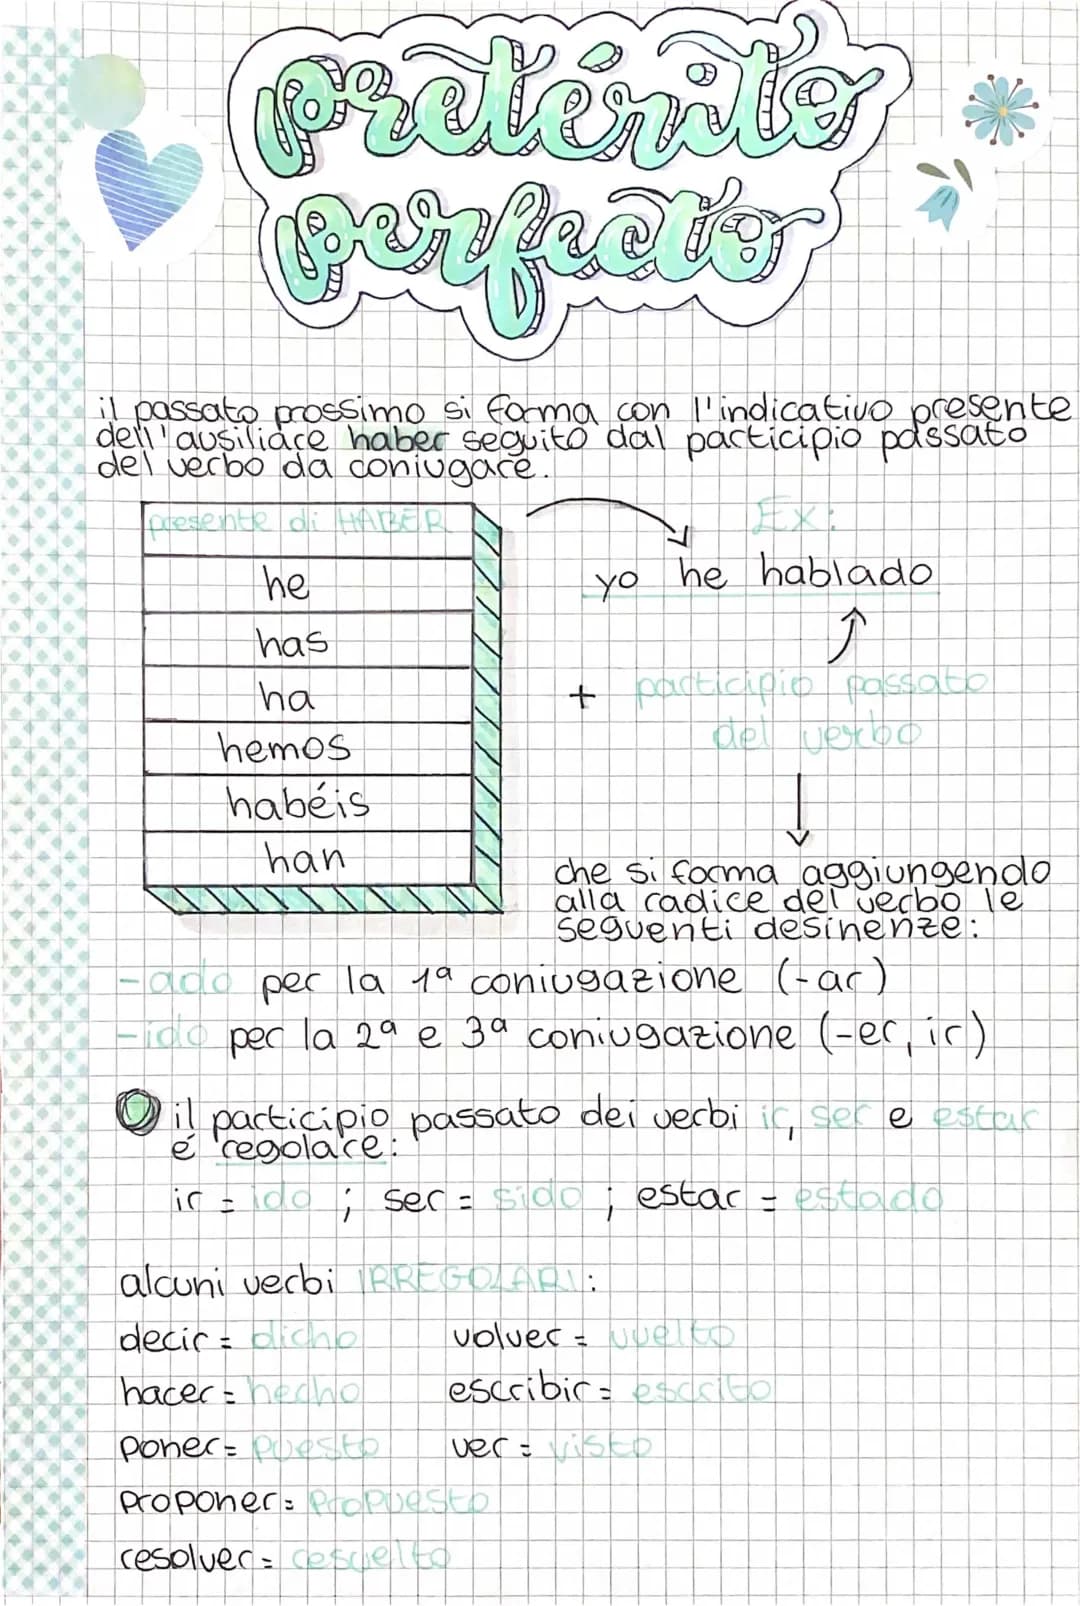 pretérito
perfecto
il passato prossimo si forma con l'indicativo presente
dell'ausiliare haber seguito dal participio passato
del verbo da coniugare.
presente di HABER
he
has
ha
hemos
habéis
han
Ex:
yo he hablado
+ participio passato
del verbo
che si forma aggiungendo
alla radice del verbo le
seguenti desinenze:
-ado per la 1ª coniugazione (-ar)
-ido per la 2ª e 3ª coniugazione (-er, ir)
il participio passato dei verbi ir, ser e estar
é regolare:
ir = ido ; ser = sido ; estar = estado
alcuni verbi IRREGOLARI:
decir = dicho volver = vuelto
hacer = hecho escribir = escrito
poner = puesto ver = visto
proponer = propuesto
resolver = resuelto